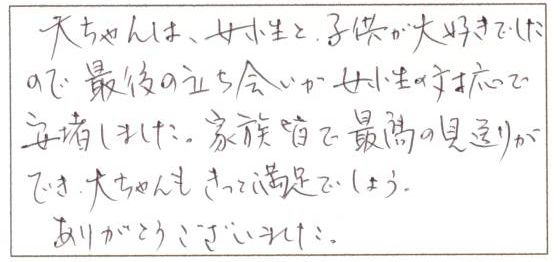 大ちゃんは、女性と、子供が大好きでした
ので最後の立ち会いが女性の対応で
安堵しました。家族皆で最高の見送りが
でき、大ちゃんもきっと満足でしょう。
ありがとうございました。